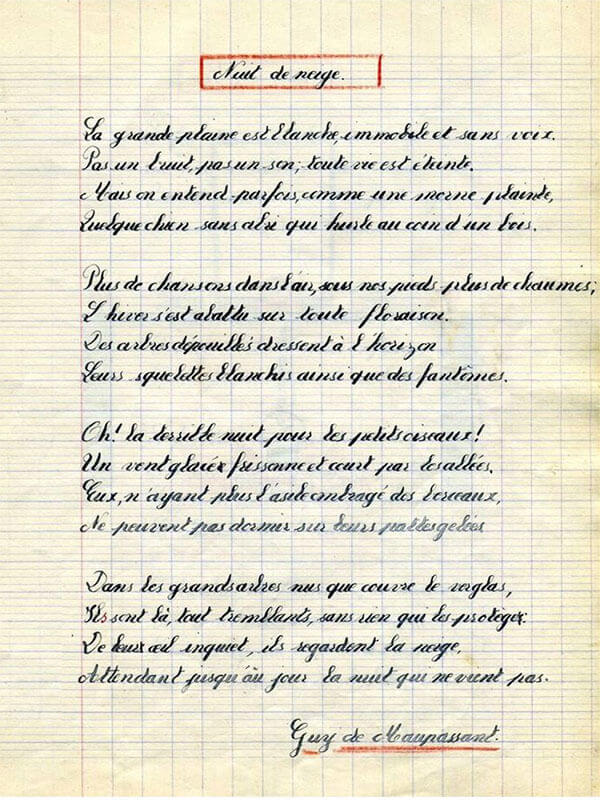 Nuit de neige.
La grande plaine est blanche, immobile et sans voix.
Pas un bruit, pas un son ; toute vie est éteinte.
Mais on entend parfois, comme une morne plainte,
Quelque chien sans abri qui hurle au coin d'un bois.
Plus de chansons dans l'air, sous nos pieds plus de chaumes ;
L'hiver s'est abattu sur toute floraison.
Des arbres dépouillés dressent à l'horizon
Leurs squelettes blanchis ainsi que des fantômes.
Oh ! la terrible nuit pour les petits oiseaux !
Un vent glacé frissonne et court par les allées.
Eux, n'ayant plus l'asile ombragé des berceaux,
Ne peuvent pas dormir sur leurs pattes gelées
Dans les grands arbres nus que couvre le verglas,
Ils sont là, tout tremblants, sans rien qui les protège.
De leur œil inquiet, ils regardent la neige,
Attendant jusqu'au jour la nuit qui ne vient pas.
Guy de Maupassant.